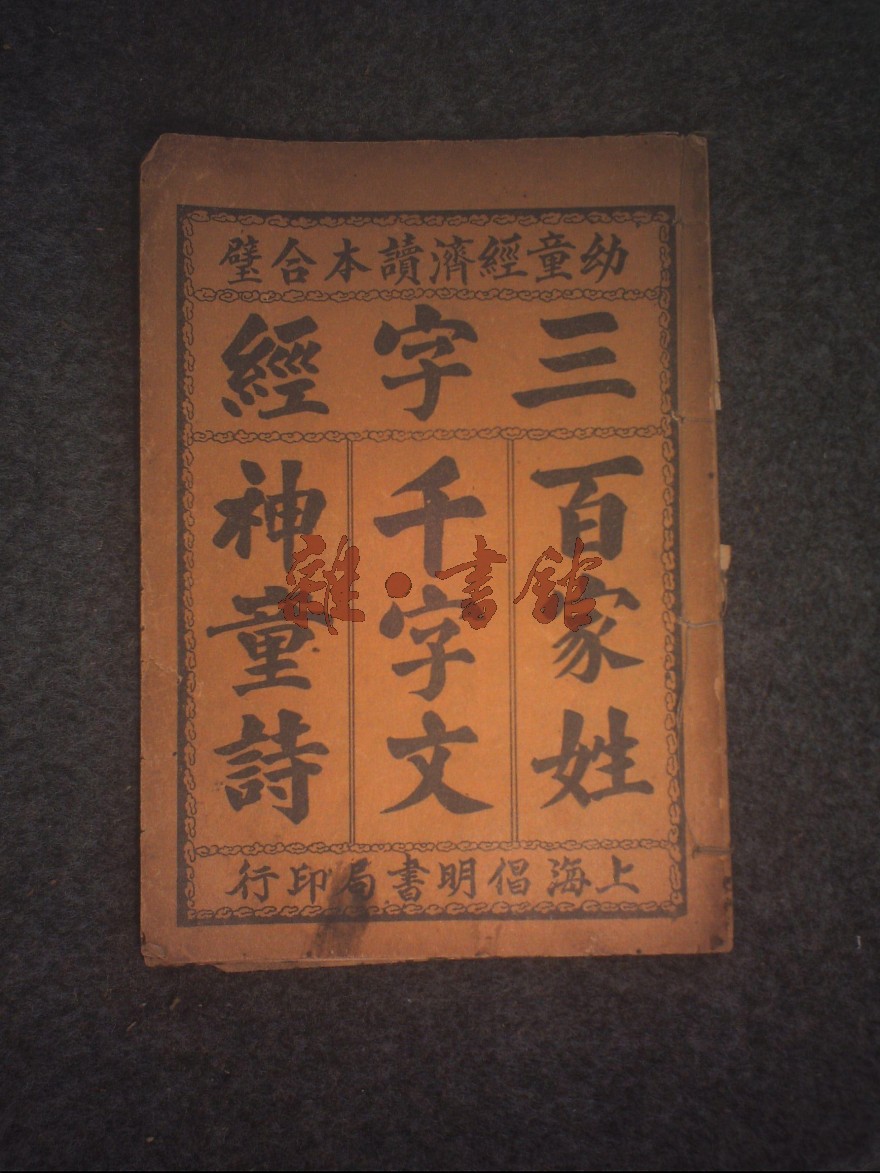 幼童經濟讀本合璧
三字經
百家姓
千字文
神童詩
上海倡明書局印行
雜·書館